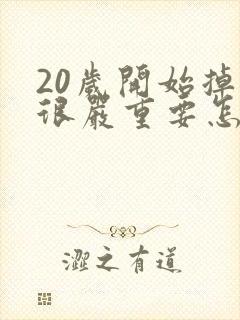 20歲開始掉
很嚴重要怎
澀之有道